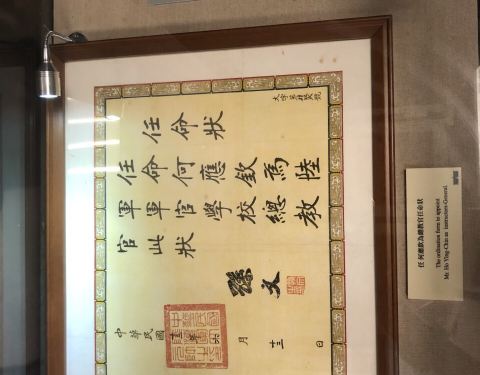 任命狀
任命何應欽為陸
軍軍官學校總教
官此狀
孫文
中華民國十三年六月十三日
任 何應欽為總教官任命狀
The ordination form to appoint
Mr. Ho Ying-Chin as instructors-General.